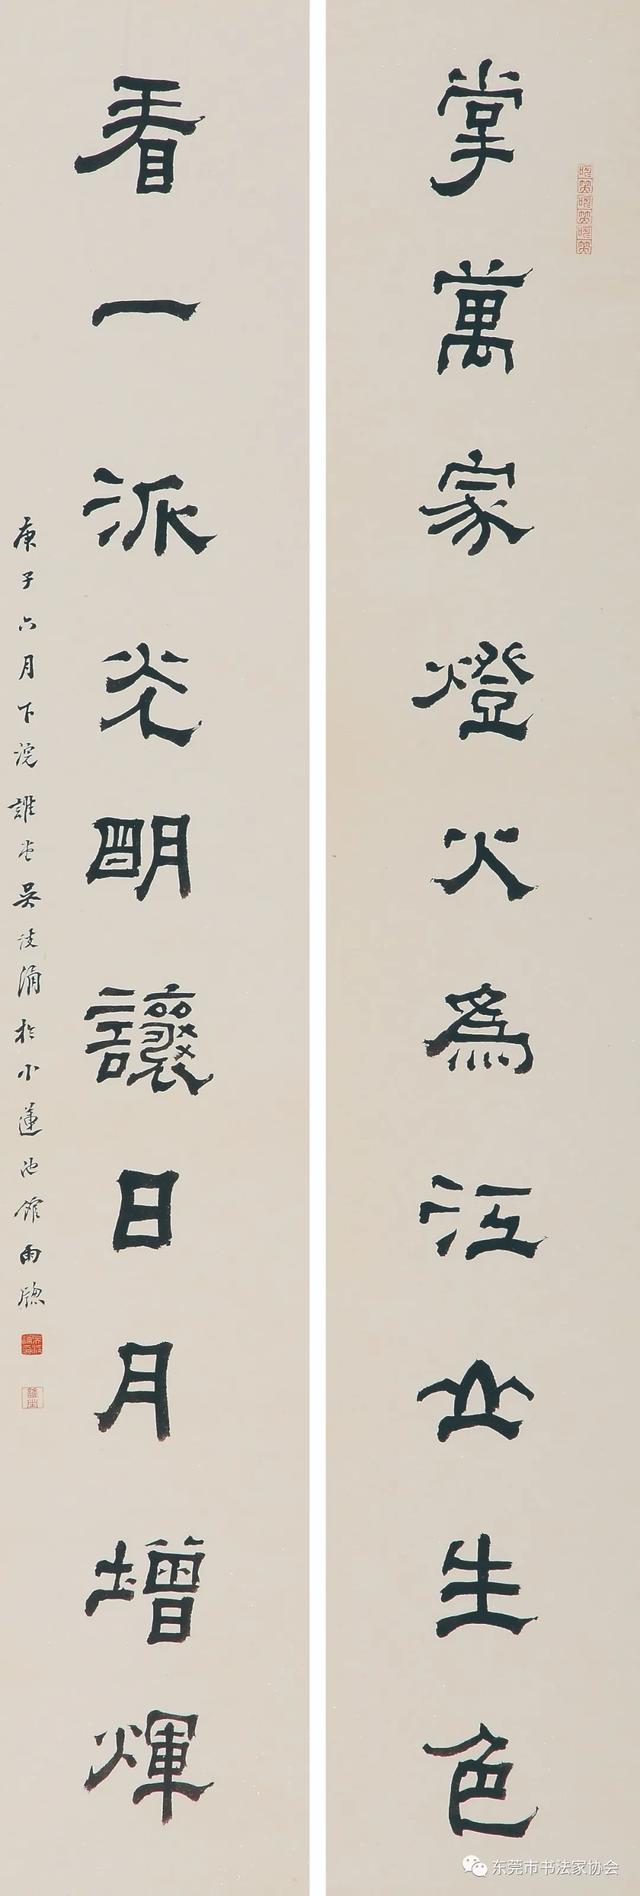 掌萬家燈火為江山生色
看一派光明讓日月增輝
庚子六月下浣謹堂吳浚涓於小蓮池館南牕
东莞市书法家协会